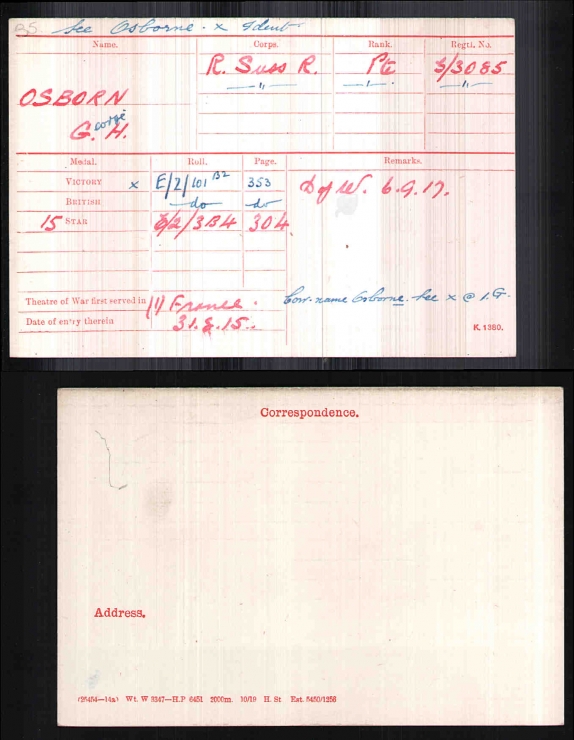 See Osborne. x Ident.
Name. Corps. Rank. Regtl. No.
R. Suss R. Pte S/3085
OSBORN —"— —"— —"—
George H.
Medal. Roll. Page. Remarks.
VICTORY x E/2/101 B2 353 D of W. 6.9.17.
BRITISH —do— do
15 STAR E/2/3B4 304
Theatre of War first served in (1) France. Corr. name Osborne. See x @ 1.G.
Date of entry therein 31.8.15.
K. 1380.
Correspondence.
Address.
Wt. W 3347—H.P 6451 2000m. 10/19 H. St Est. 5450/1256